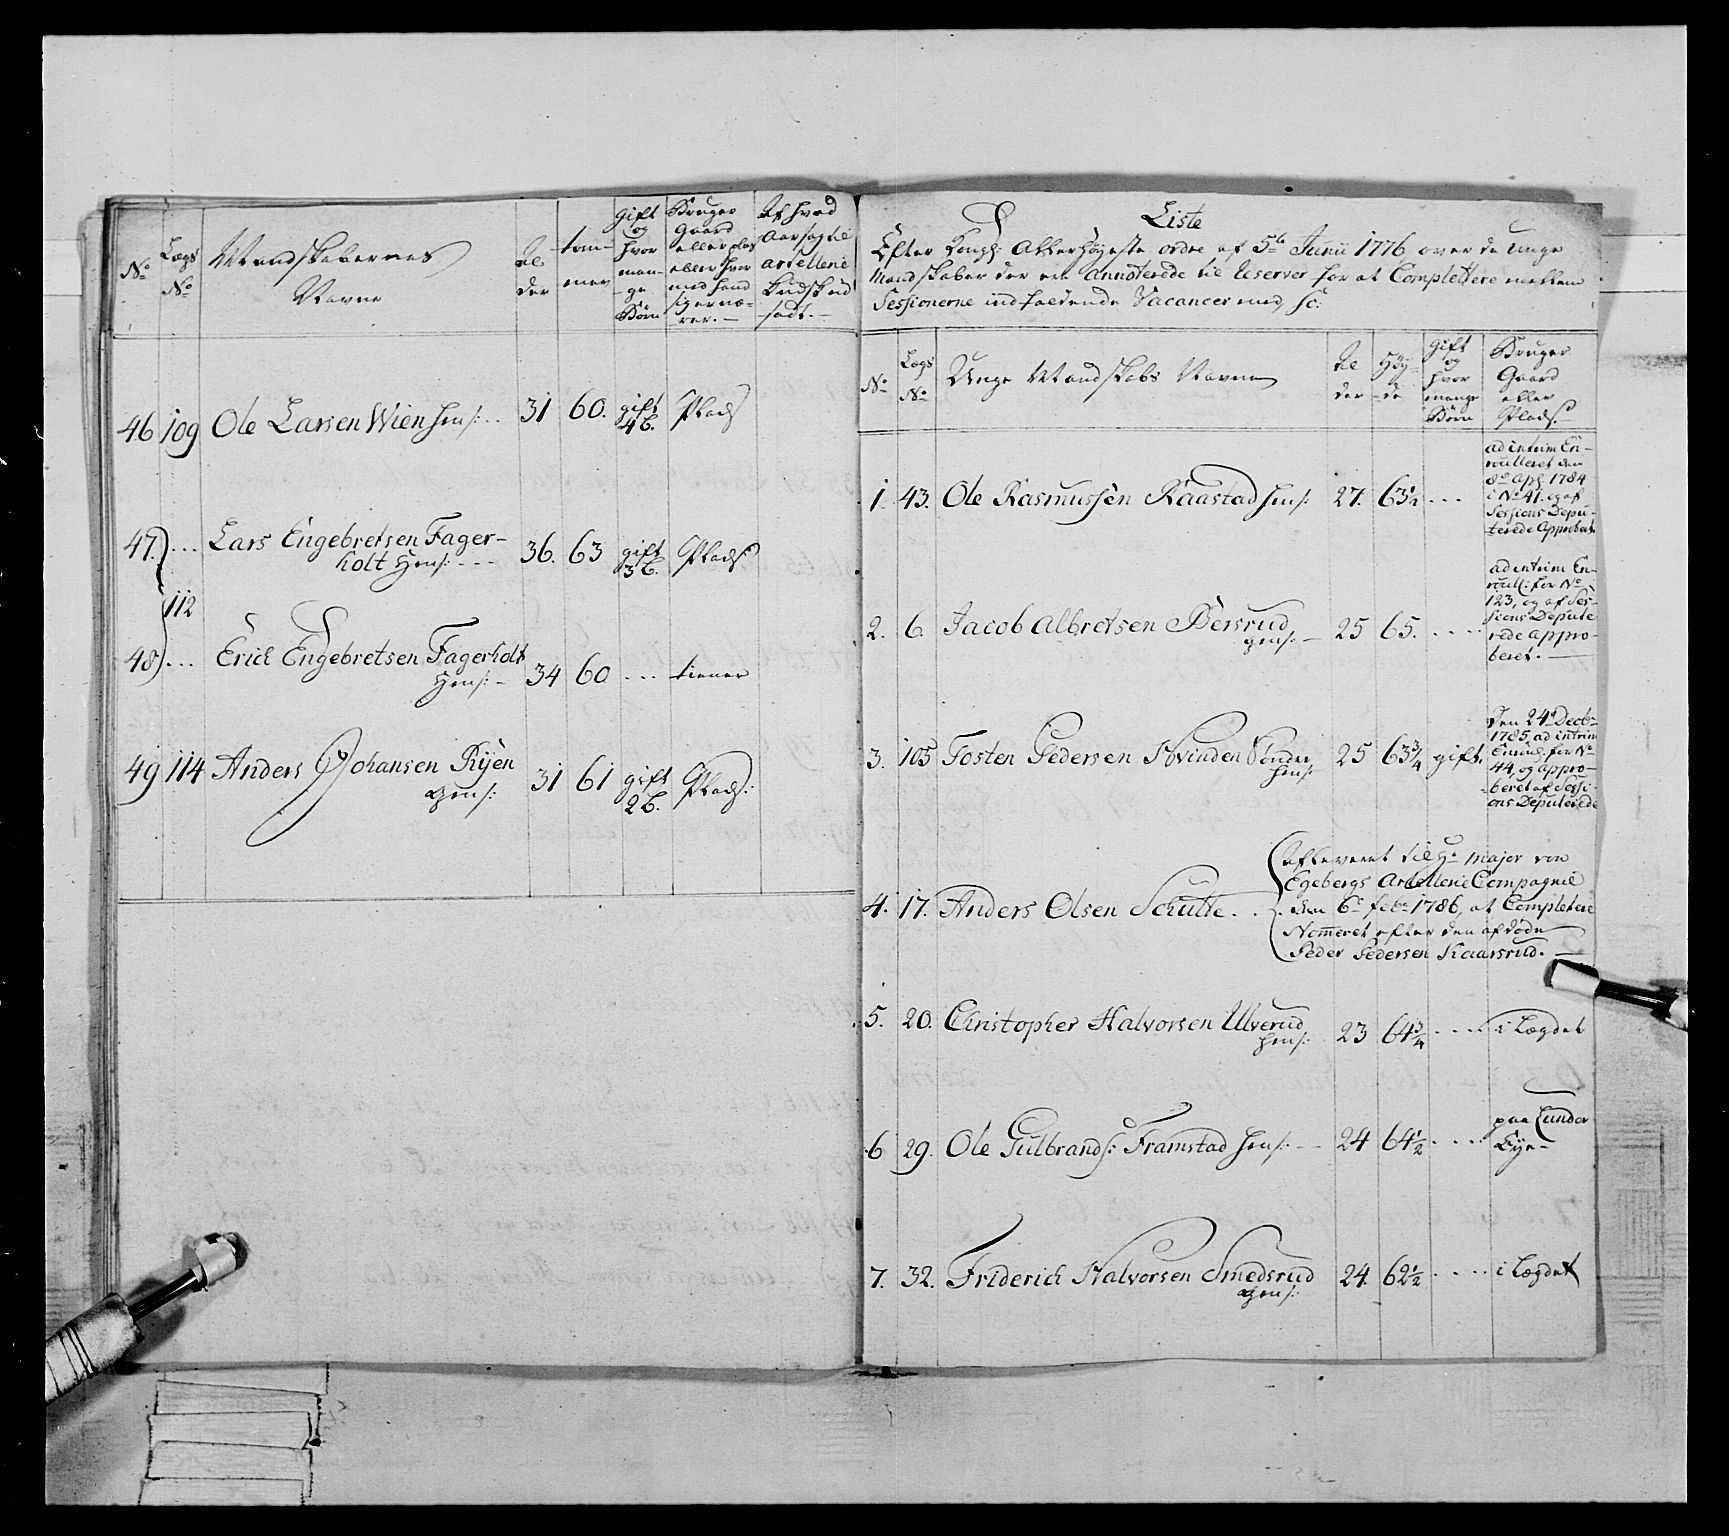 No Lægs No Mandskabernes Navne Al der tom mer gift og hvor man ge Børn Bruger Gaard eller plas eller hvor med hand sig ernæ- rer. Af hvad Aarsag til artellerie Budskud sadt.
46 109 Ole Larsen Wien hens: 31 60. gift 4 b. Plads
47. Lars Engebretsen Fager-
holt hens: 36. 63 gift 3 b. Plads
112
48 Erich Engebretsen Fagerholt
hens: 34 60 tiener
49 114 Anders Johansen Rÿen
gens: 31 61 gift 2 b. Plads:
Liste
Efter Kongl: Allerhøyeste ordre af 5te Junii 1776, over de Unge
Mandskaber der ere Annoterede til Reserver for at Complettere mellem
Sessionerne indfaldende Vacancer med, sc:
No Lægs No Unge Mandskabs Navne Al der Høy- de gift og hvor mange Børn Bruger Gaard eller Plads.
1 43. Ole Rasmussen Raastad hens: 27. 63½
ad intrim En-
roulleret den
8de Apl 1784
i No 41. og af
Sessions Depu-
terede Approbert
2. 6. Jacob Albretsen Bersrud
gens: 25 65.
ad intrim En-
roull: for No
123, og af Ses-
sions Depute
rede appro-
beret.
3. 105 Tosten Pedersen Hvinden Sønder
hens: 25 63¾ gift.
Den 24de Decbr
1785, ad intrim
Enroul: for No
44, og appro-
beret af Sessi-
ons Deputerede
4. 17. Anders Olsen Schulte
Afleveret til Hr Major von
Egebergs Artellerie Compagnie
den 6te febr 1786, at Completere
Nommeret efter den afdøde
Peder Pedersen Kaarsrud.
5. 20. Christopher Halvorsen Ulverud
hens: 23 64¾ i Lægdet
6 29. Ole Gulbrands: Framstad hens: 24 64½ paa Lunder
Eye
7. 32. Friderich Halvorsen Smedsrud
gens: 24. 62½ i Lægdet